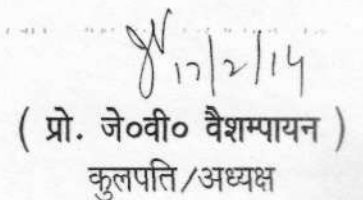 17/2/14
( प्रो. जे०वी० वैशम्पायन )
कुलपति/अध्यक्ष